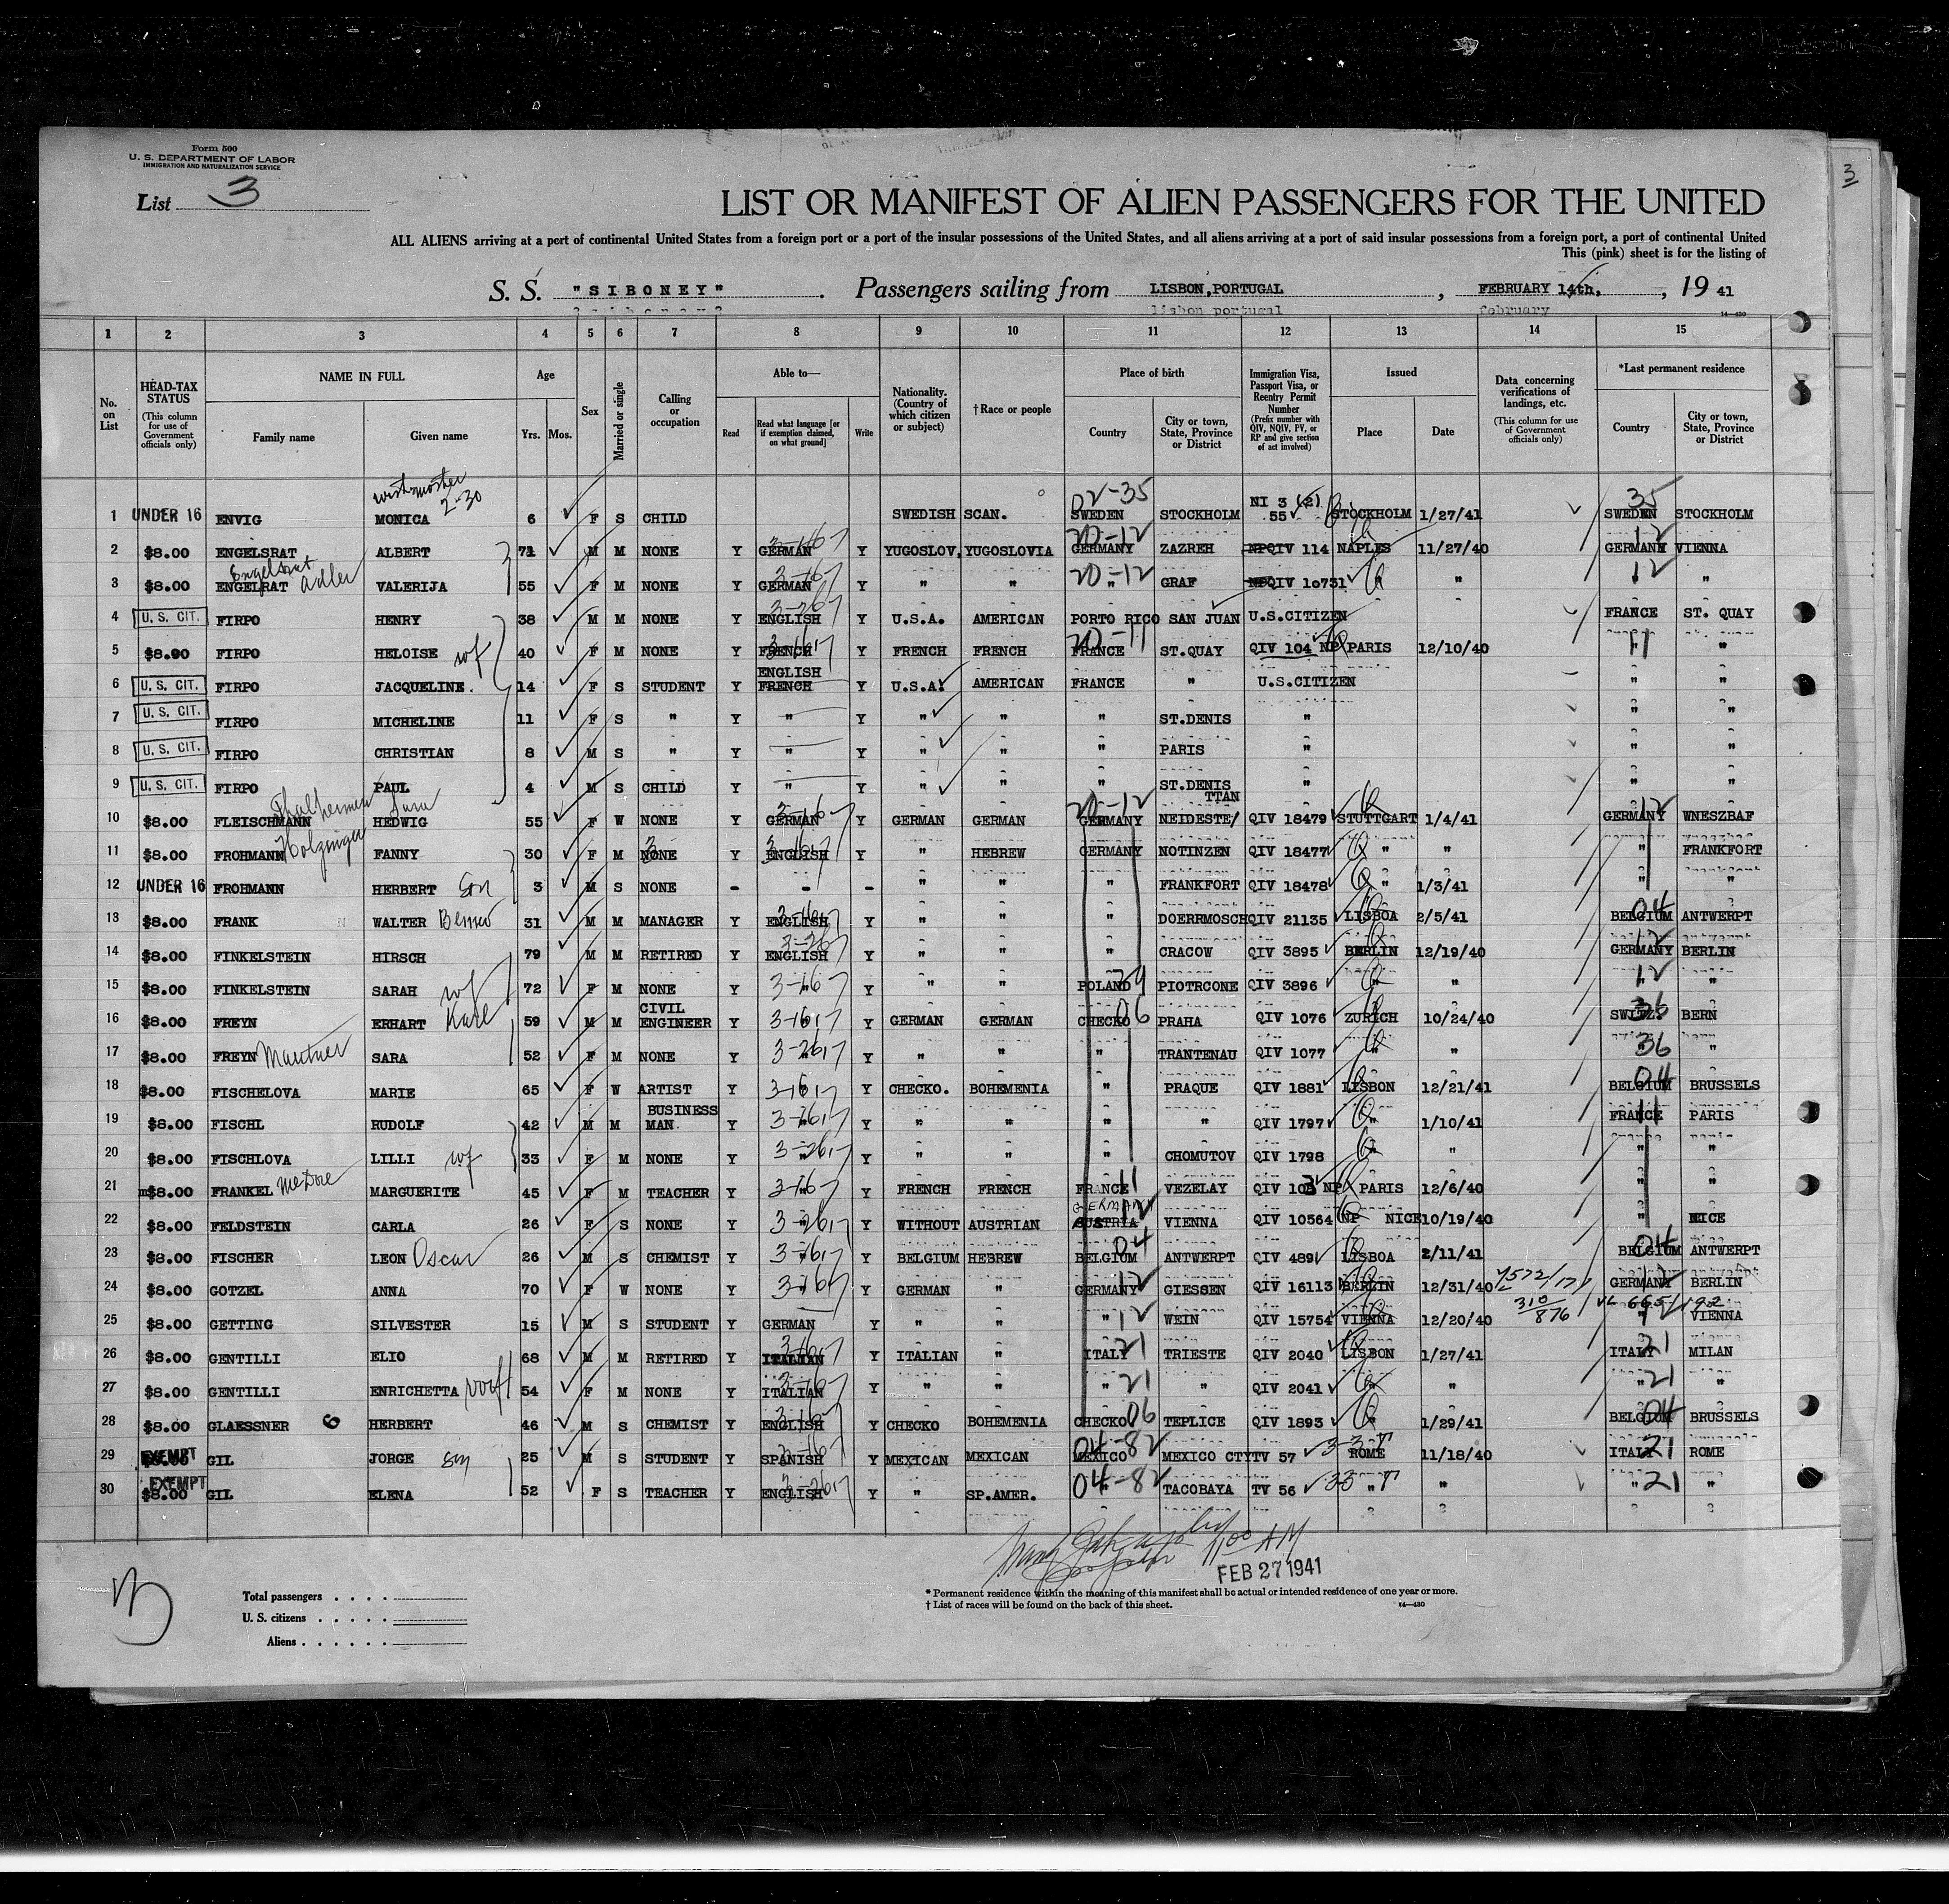 3
Form 500
U. S. DEPARTMENT OF LABOR
IMMIGRATION AND NATURALIZATION SERVICE
List 3
LIST OR MANIFEST OF ALIEN PASSENGERS FOR THE UNITED
ALL ALIENS arriving at a port of continental United States from a foreign port or a port of the insular possessions of the United States, and all aliens arriving at a port of said insular possessions from a foreign port, a port of continental United
This (pink) sheet is for the listing of
S. S. "SIBONEY" Passengers sailing from LISBON,PORTUGAL , FEBRUARY 14th. , 19 41
lisbon portugal february 14—430
1 2 3 4 5 6 7 8 9 10 11 12 13 14 15
No. on List
HEAD-TAX STATUS (This column for use of Government officials only)
NAME IN FULL Family name Given name
Age Yrs. Mos.
Sex
Married or single
Calling or occupation
Able to— Read Read what language [or if exemption claimed, on what ground] Write
Nationality. (Country of which citizen or subject)
†Race or people
Place of birth Country City or town, State, Province or District
Immigration Visa, Passport Visa, or Reentry Permit Number (Prefix number with QIV, NQIV, PV, or RP and give section of act involved)
Issued Place Date
Data concerning verifications of landings, etc. (This column for use of Government officials only)
*Last permanent residence Country City or town, State, Province or District
2-30 02-35 35
1 UNDER 16 ENVIG MONICA 6 F S CHILD SWEDISH SCAN. SWEDEN STOCKHOLM NI 3 (2) 55 STOCKHOLM 1/27/41 SWEDEN STOCKHOLM
2 $8.00 ENGELSRAT ALBERT 71 M M NONE Y GERMAN Y YUGOSLOV. YUGOSLOVIA 20-12 GERMANY ZAZREH NPQIV 114 NAPLES 11/27/40 12 GERMANY VIENNA
Engelsrat
3 $8.00 ENGELRAT Adler VALERIJA 55 F M NONE Y GERMAN Y " " 20-12 " GRAF NPQIV 10731 " " 12 " "
4 U. S. CIT. FIRPO HENRY 38 M M NONE Y ENGLISH Y U.S.A. AMERICAN PORTO RICO SAN JUAN U.S.CITIZEN FRANCE ST. QUAY
5 $8.00 FIRPO HELOISE wf 40 F M NONE Y FRENCH Y FRENCH FRENCH 20-11 FRANCE ST.QUAY QIV 104 NP PARIS 12/10/40 11 " "
6 U. S. CIT. FIRPO JACQUELINE. 14 F S STUDENT Y ENGLISH FRENCH Y U.S.A. AMERICAN FRANCE " U.S.CITIZEN " "
7 U. S. CIT. FIRPO MICHELINE 11 F S " Y " Y " " " ST.DENIS " " "
8 U. S. CIT. FIRPO CHRISTIAN 8 M S " Y " Y " " " PARIS " " "
9 U. S. CIT. FIRPO PAUL 4 M S CHILD Y " Y " " " ST.DENIS " " "
10 $8.00 FLEISCHMANN HEDWIG Sara 55 F W NONE Y GERMAN Y GERMAN GERMAN 20-12 GERMANY NEIDESTE/TTAN QIV 18479 STUTTGART 1/4/41 12 GERMANY WNESZBAF
11 $8.00 FROHMANN Holzinger FANNY 30 F M NONE Y ENGLISH Y " HEBREW GERMANY NOTINZEN QIV 18477 " " " FRANKFORT
12 UNDER 16 FROHMANN HERBERT Son 3 M S NONE - - - " " " FRANKFORT QIV 18478 " 1/3/41 " "
13 $8.00 FRANK WALTER 31 M M MANAGER Y ENGLISH Y " " " DOERRMOSCH QIV 21135 LISBOA 2/5/41 04 BELGIUM ANTWERPT
14 $8.00 FINKELSTEIN HIRSCH 79 M M RETIRED Y ENGLISH Y " " " CRACOW QIV 3895 BERLIN 12/19/40 12 GERMANY BERLIN
15 $8.00 FINKELSTEIN SARAH wf 72 F M NONE Y " Y " " POLAND PIOTRCONE QIV 3896 " " 12 " "
16 $8.00 FREYN ERHART Karl 59 M M CIVIL ENGINEER Y " Y GERMAN GERMAN CHECKO 06 PRAHA QIV 1076 ZURICH 10/24/40 36 SWITZ. BERN
17 $8.00 FREYN Mautner SARA 52 F M NONE Y " Y " " " TRANTENAU QIV 1077 " " 36 " "
18 $8.00 FISCHELOVA MARIE 65 F W ARTIST Y " Y CHECKO. BOHEMENIA " PRAQUE QIV 1881 LISBON 12/21/41 04 BELGIUM BRUSSELS
19 $8.00 FISCHL RUDOLF 42 M M BUSINESS MAN. Y " Y " " " " QIV 1797 " 1/10/41 11 FRANCE PARIS
20 $8.00 FISCHLOVA LILLI wf 33 F M NONE Y " Y " " " CHOMUTOV QIV 1798 " " " "
21 $8.00 FRANKEL MARGUERITE 45 F M TEACHER Y " Y FRENCH FRENCH FRANCE 11 VEZELAY QIV 103 NP PARIS 12/6/40 " "
22 $8.00 FELDSTEIN CARLA 26 F S NONE Y " Y WITHOUT AUSTRIAN GERMANY 12 AUSTRIA VIENNA QIV 10564 NP NICE 10/19/40 " NICE
23 $8.00 FISCHER LEON Oscar 26 M S CHEMIST Y " Y BELGIUM HEBREW BELGIUM 04 ANTWERPT QIV 489 LISBOA 2/11/41 04 BELGIUM ANTWERPT
24 $8.00 GOTZEL ANNA 70 F W NONE Y " Y GERMAN " GERMANY 12 GIESSEN QIV 16113 BERLIN 12/31/40 GERMANY BERLIN
25 $8.00 GETTING SILVESTER 15 M S STUDENT Y GERMAN Y " " " 12 WEIN QIV 15754 VIENNA 12/20/40 310/876 " VIENNA
26 $8.00 GENTILLI ELIO 68 M M RETIRED Y ITALIAN Y ITALIAN " ITALY 21 TRIESTE QIV 2040 LISBON 1/27/41 ITALY 21 MILAN
27 $8.00 GENTILLI ENRICHETTA 54 F M NONE Y ITALIAN Y " " " 21 " QIV 2041 " " " 21 "
28 $8.00 GLAESSNER HERBERT 46 M S CHEMIST Y ENGLISH Y CHECKO BOHEMENIA CHECKO 06 TEPLICE QIV 1893 " 1/29/41 04 BELGIUM BRUSSELS
29 EXEMPT $8.00 GIL JORGE son 25 M S STUDENT Y SPANISH Y MEXICAN MEXICAN 04-82 MEXICO MEXICO CTY TV 57 ROME 11/18/40 ITALY 21 ROME
30 EXEMPT $8.00 GIL ELENA 52 F S TEACHER Y ENGLISH Y " SP.AMER. 04-82 " TACOBAYA TV 56 " " " 21 "
11:00 AM
FEB 27 1941
Total passengers . . . .
U. S. citizens . . . . .
Aliens . . . . . .
* Permanent residence within the meaning of this manifest shall be actual or intended residence of one year or more.
† List of races will be found on the back of this sheet. 14—430